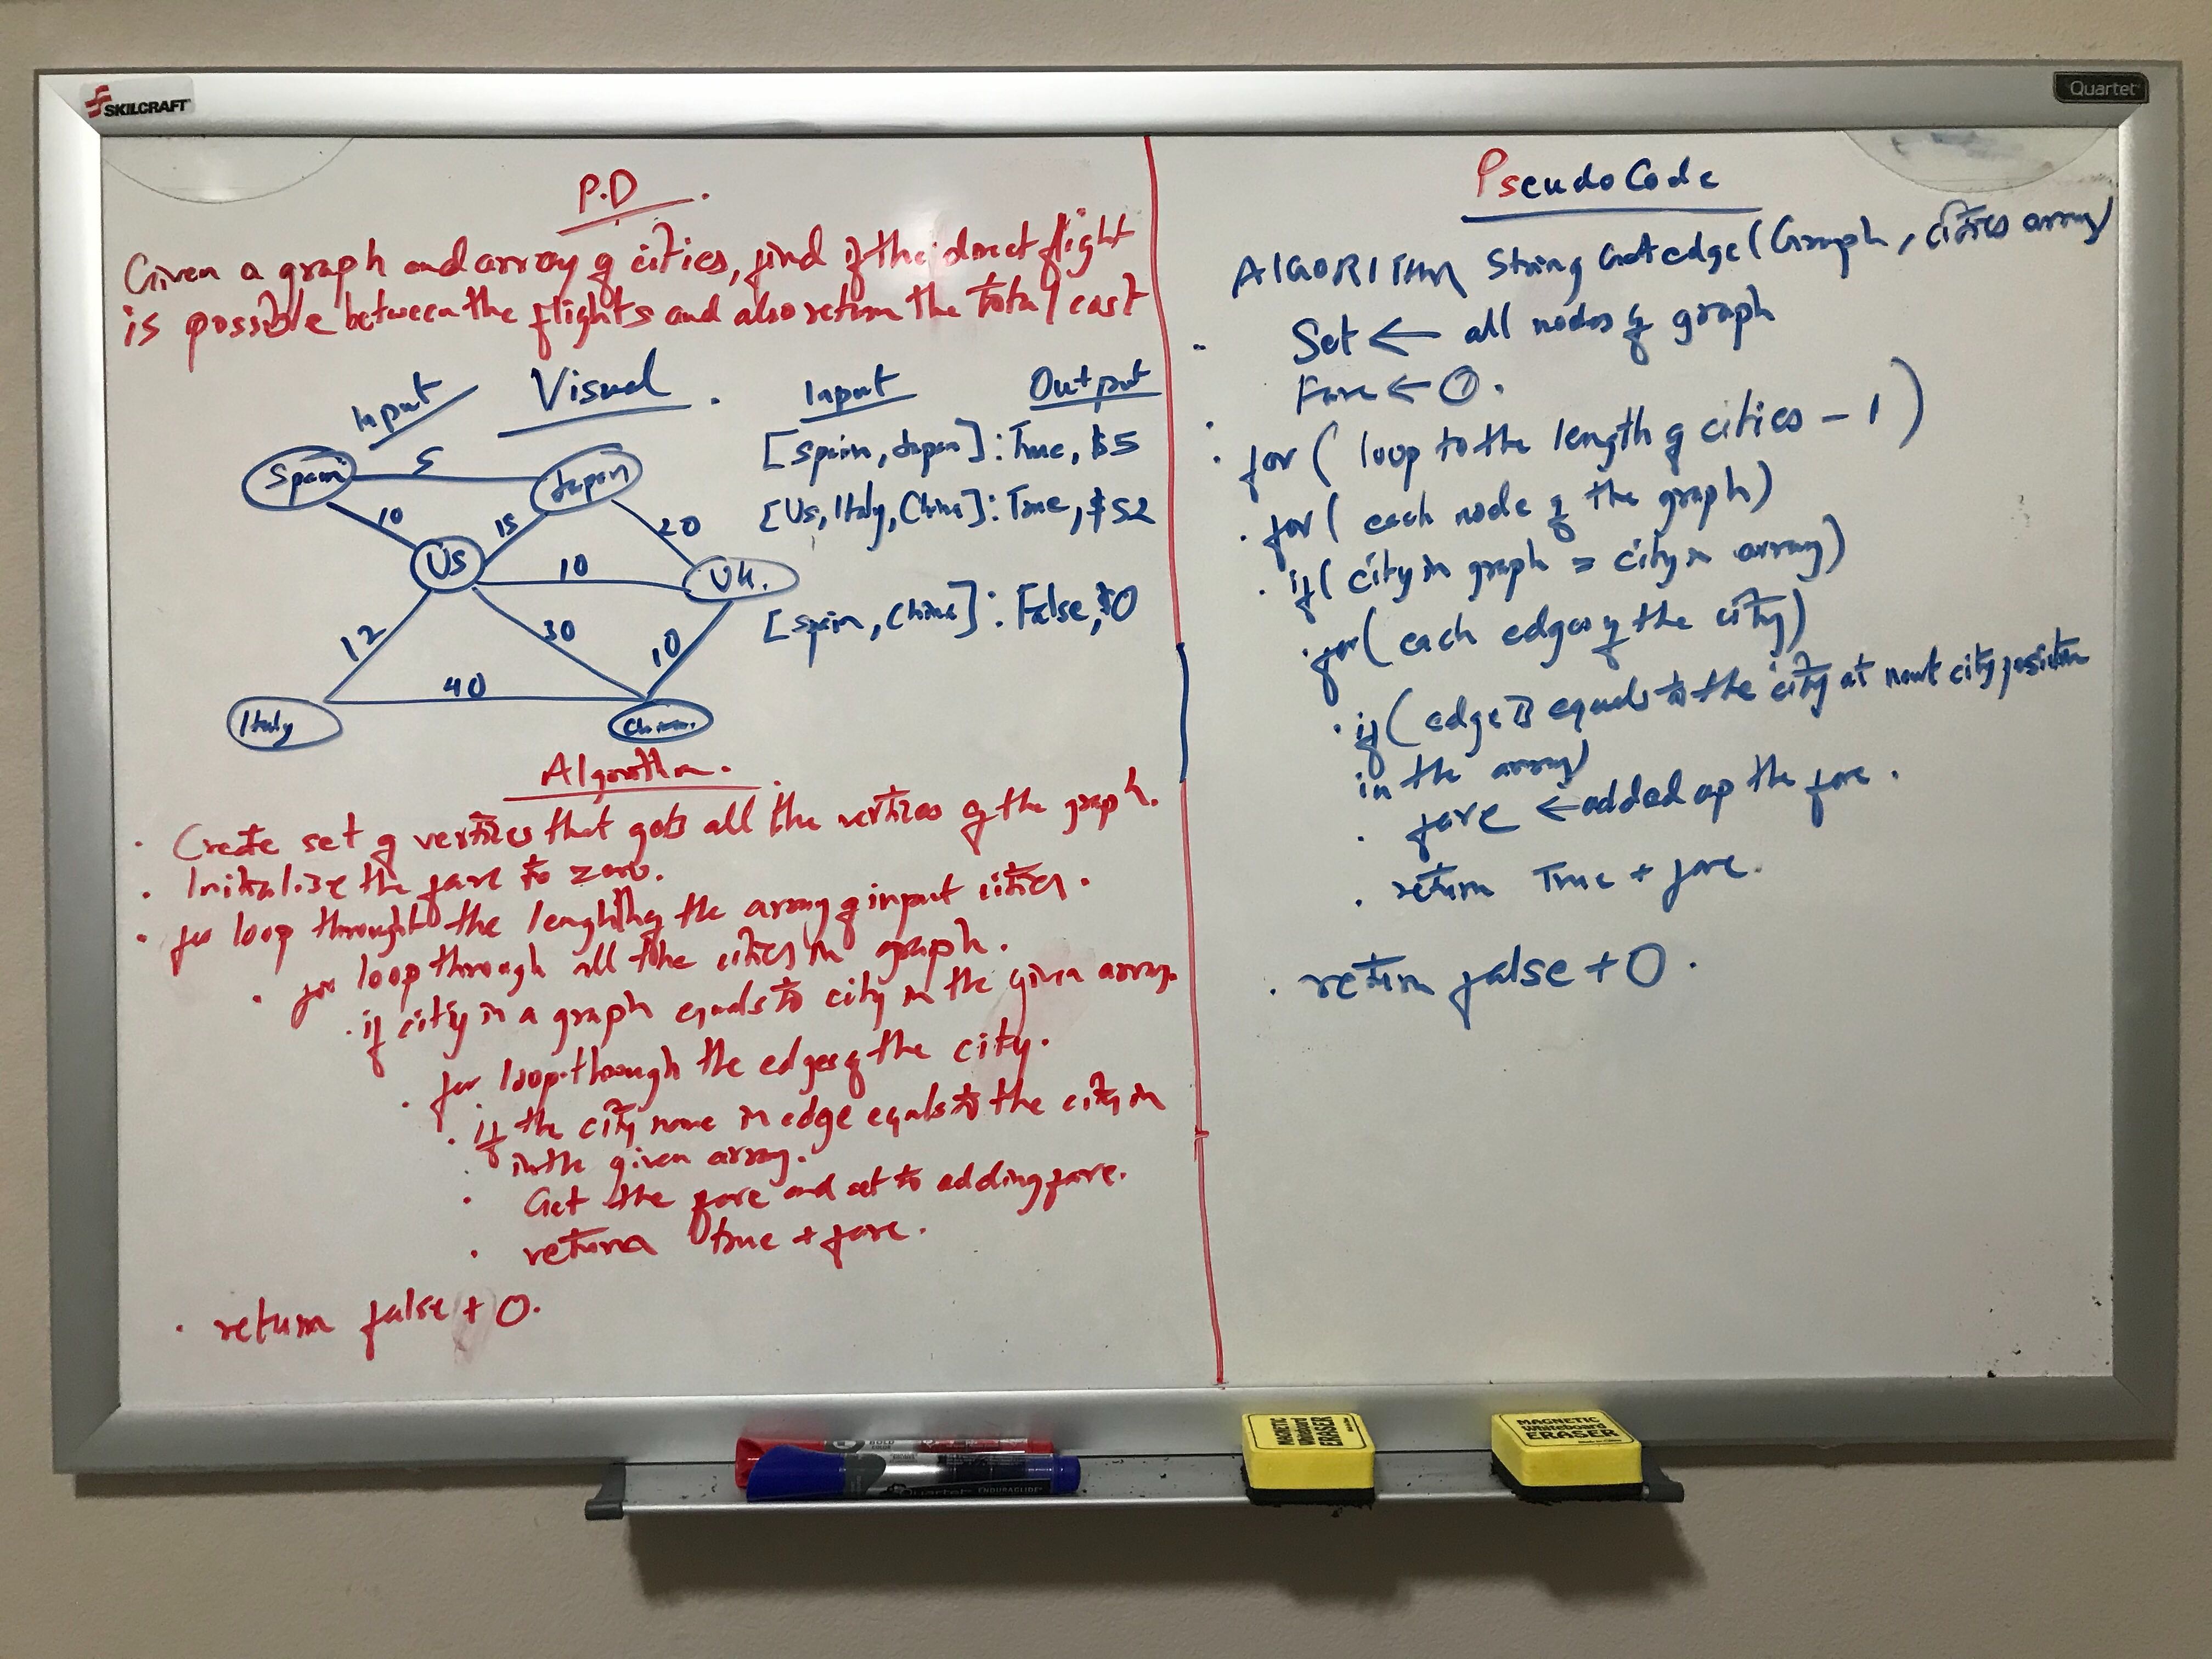 SKILCRAFT
Quartet
P.D
Given a graph and array of cities, find if the direct flight
is possible between the flights and also return the total cost
Input
Visual
Spain
5
Japan
10
15
20
US
10
UK.
12
30
10
Italy
40
China
Input
Output
[Spain, Japan]: True, $5
[US, Italy, China]: True, $52
[Spain, China]: False, $0
Algorithm.
· Create set of vertices that gets all the vertices of the graph.
· Initialize the fare to zero.
· for loop through the the array of input cities.
· for loop through all the cities in graph.
· if city in a graph equals to city in the given array.
· for loop through the edges of the city.
· if the city name in edge equals to the city in
in the given array.
· Get the fare and set to adding fare.
· return true + fare.
· return false + 0.
PseudoCode
ALGORITHM String Get edge (Graph, cities array)
Set ← all nodes of graph
Fare ← 0.
· for ( loop to the length of cities - 1 )
· for ( each node of the graph)
· if ( city in graph = city in array)
· for ( each edges of the city)
· if ( edge is equals to the city at next city position
in the array)
· fare ← added up the fare.
· return True + fare.
· return false + 0.
BOLD
COLOR
Quartet ENDURAGLIDE
MAGNETIC
Whiteboard
ERASER
MAGNETIC
Whiteboard
ERASER